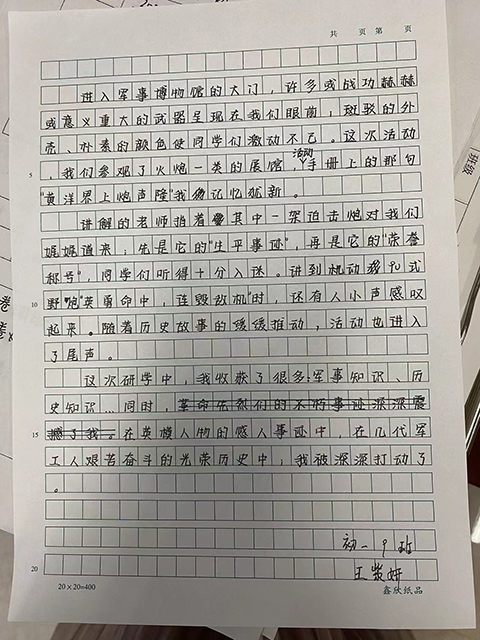 共 页 第 页
进入军事博物馆的大门，许多或战功赫赫
或意义重大的武器呈现在我们眼前；斑驳的外
壳、朴素的颜色使同学们激动不已。这次活动
5
，我们参观了火炮一类的展馆，活动手册上的那句
"黄洋界上炮声隆"我记忆犹新。
讲解的老师指着其中一架迫击炮对我们
娓娓道来；先是它的"生平事迹"，再是它的"荣誉
称号"，同学们听得十分入迷。讲到机动式
10
野炮"英勇命中，连毁敌机"时，还有人小声感叹
起来。随着历史故事的缓缓推动，活动也进入
了尾声。
这次研学中，我收获了很多；军事知识、历
史知识…同时，革命先烈们的不朽事迹深深震
15
撼了我。在英模人物的感人事迹中，在几代军
工人艰苦奋斗的光荣历史中；我被深深打动了
。
初一9班
20
王 妍
20×20=400
鑫欣纸品
班级
卷